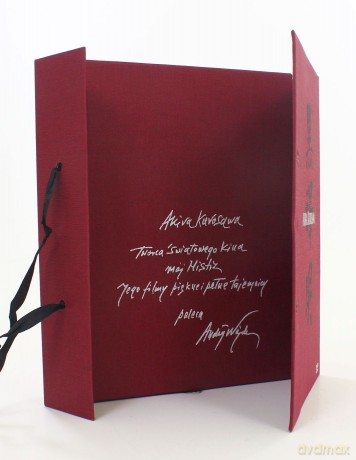 Akira Kurosawa
Twórca światowego kina
mój Mistrz
Jego filmy piękne i pełne tajemnicy
poleca
Andrzej Wajda
dvdmax